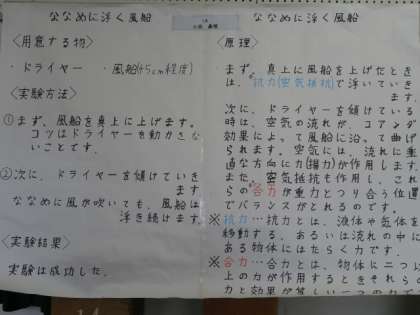 ななめに浮く風船
〈用意する物〉
・ドライヤー ・風船(45cm程度)
〈実験方法〉
①まず、風船を真上に上げます。
コツはドライヤーを動かさな
いことです。
②次に、ドライヤーを傾けていき
ます
ななめに風が吹いても、風船は
浮き続けます。
〈実験結果〉
実験は成功した。
ななめに浮く風船
〈原理〉
まず、真上に風船を上げたとき
は、抗力(空気抵抗)で浮いていき
ます
次に、ドライヤーを傾けている
時は、空気の流れが、コアンダ
効果によって風船に沿って曲げ
られます。空気には、流れに垂
直な方向に力(揚力)が作用します
また、空気抵抗も作用し、これ
らの合力が重力とつり合う位置
でバランスがとれるのです。
※抗力…抗力とは、液体や気体を
移動する、あるいは流れの中に
ある物体にはたらく力です。
※合力…合力とは、物体に二つ以
上の力が作用するときそれらの
力と効果が等しい一つの力で